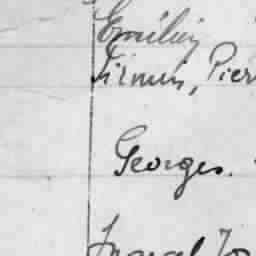 Emilien
Firmin, Pier
Georges.